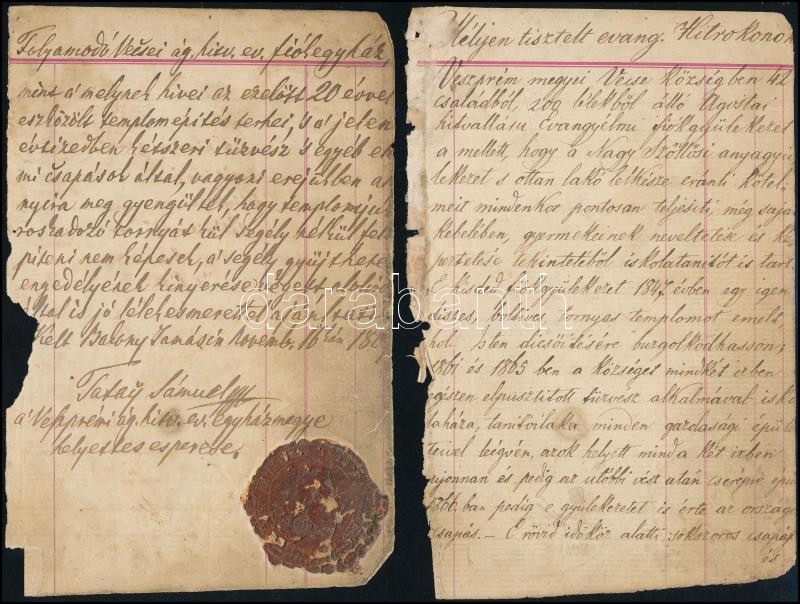 Folyamodó Vecsei ág. hitv. ev. fiókegyház,
mint a' melynek hivei az ezelőtt 20 évvel
eszközölt templomépités terhei, 's a' jelen
évtizedben kétszeri tűzvész 's egyéb
mi csapások által, vagyoni erejükben
nyira meg gyengültek, hogy templomjuk
roskadozó tornyát kül segély nélkül fel
épiteni nem képesek, a' segély gyüjthetés
engedélyének kinyerése végett
által is jó lélekismerettel
Kelt Bakony Tamásin Novemb. 16kán
Tatay Sámuel
a' Veszprémi ág. hitv. ev. egyházmegye
helyettes esperese.
Mélyen tisztelt evang. Hitrokonok
Veszprém megyei Vecse községben 42
családból, 200 lélekből álló Ágostai
hitvallásu Evangyélmi fiókgyülekezet
a mellett, hogy a Nagy Szőllősi anyagyü
lekezet s ottan lakó lelkésze eránti kötel
meit mindenkor pontosan teljesiti, még saját
kebelében, gyermekeinek neveltetése és ké
peztetése tekintetéből iskolatanitót is tart.
E kisded fiókgyülekezet 1847. évben egy igen
diszes, boltives tornyos templomot emelt
hol Isten dicsőitésére buzgólkodhasson;
1861 és 1865 ben a községet mindkét izben
egészen elpusztitott tűzvész alkalmával isko
laháza, tanitói laka minden gazdasági épüle
teivel leégvén, azok helyett mind a két izben
ujonnan és pedig az utóbbi vész után cserépre épü
1866. ban pedig e gyülekezetet is érte az országos
csapás. – E rövid időköz alatti sokszoros csapás
és
darabanth